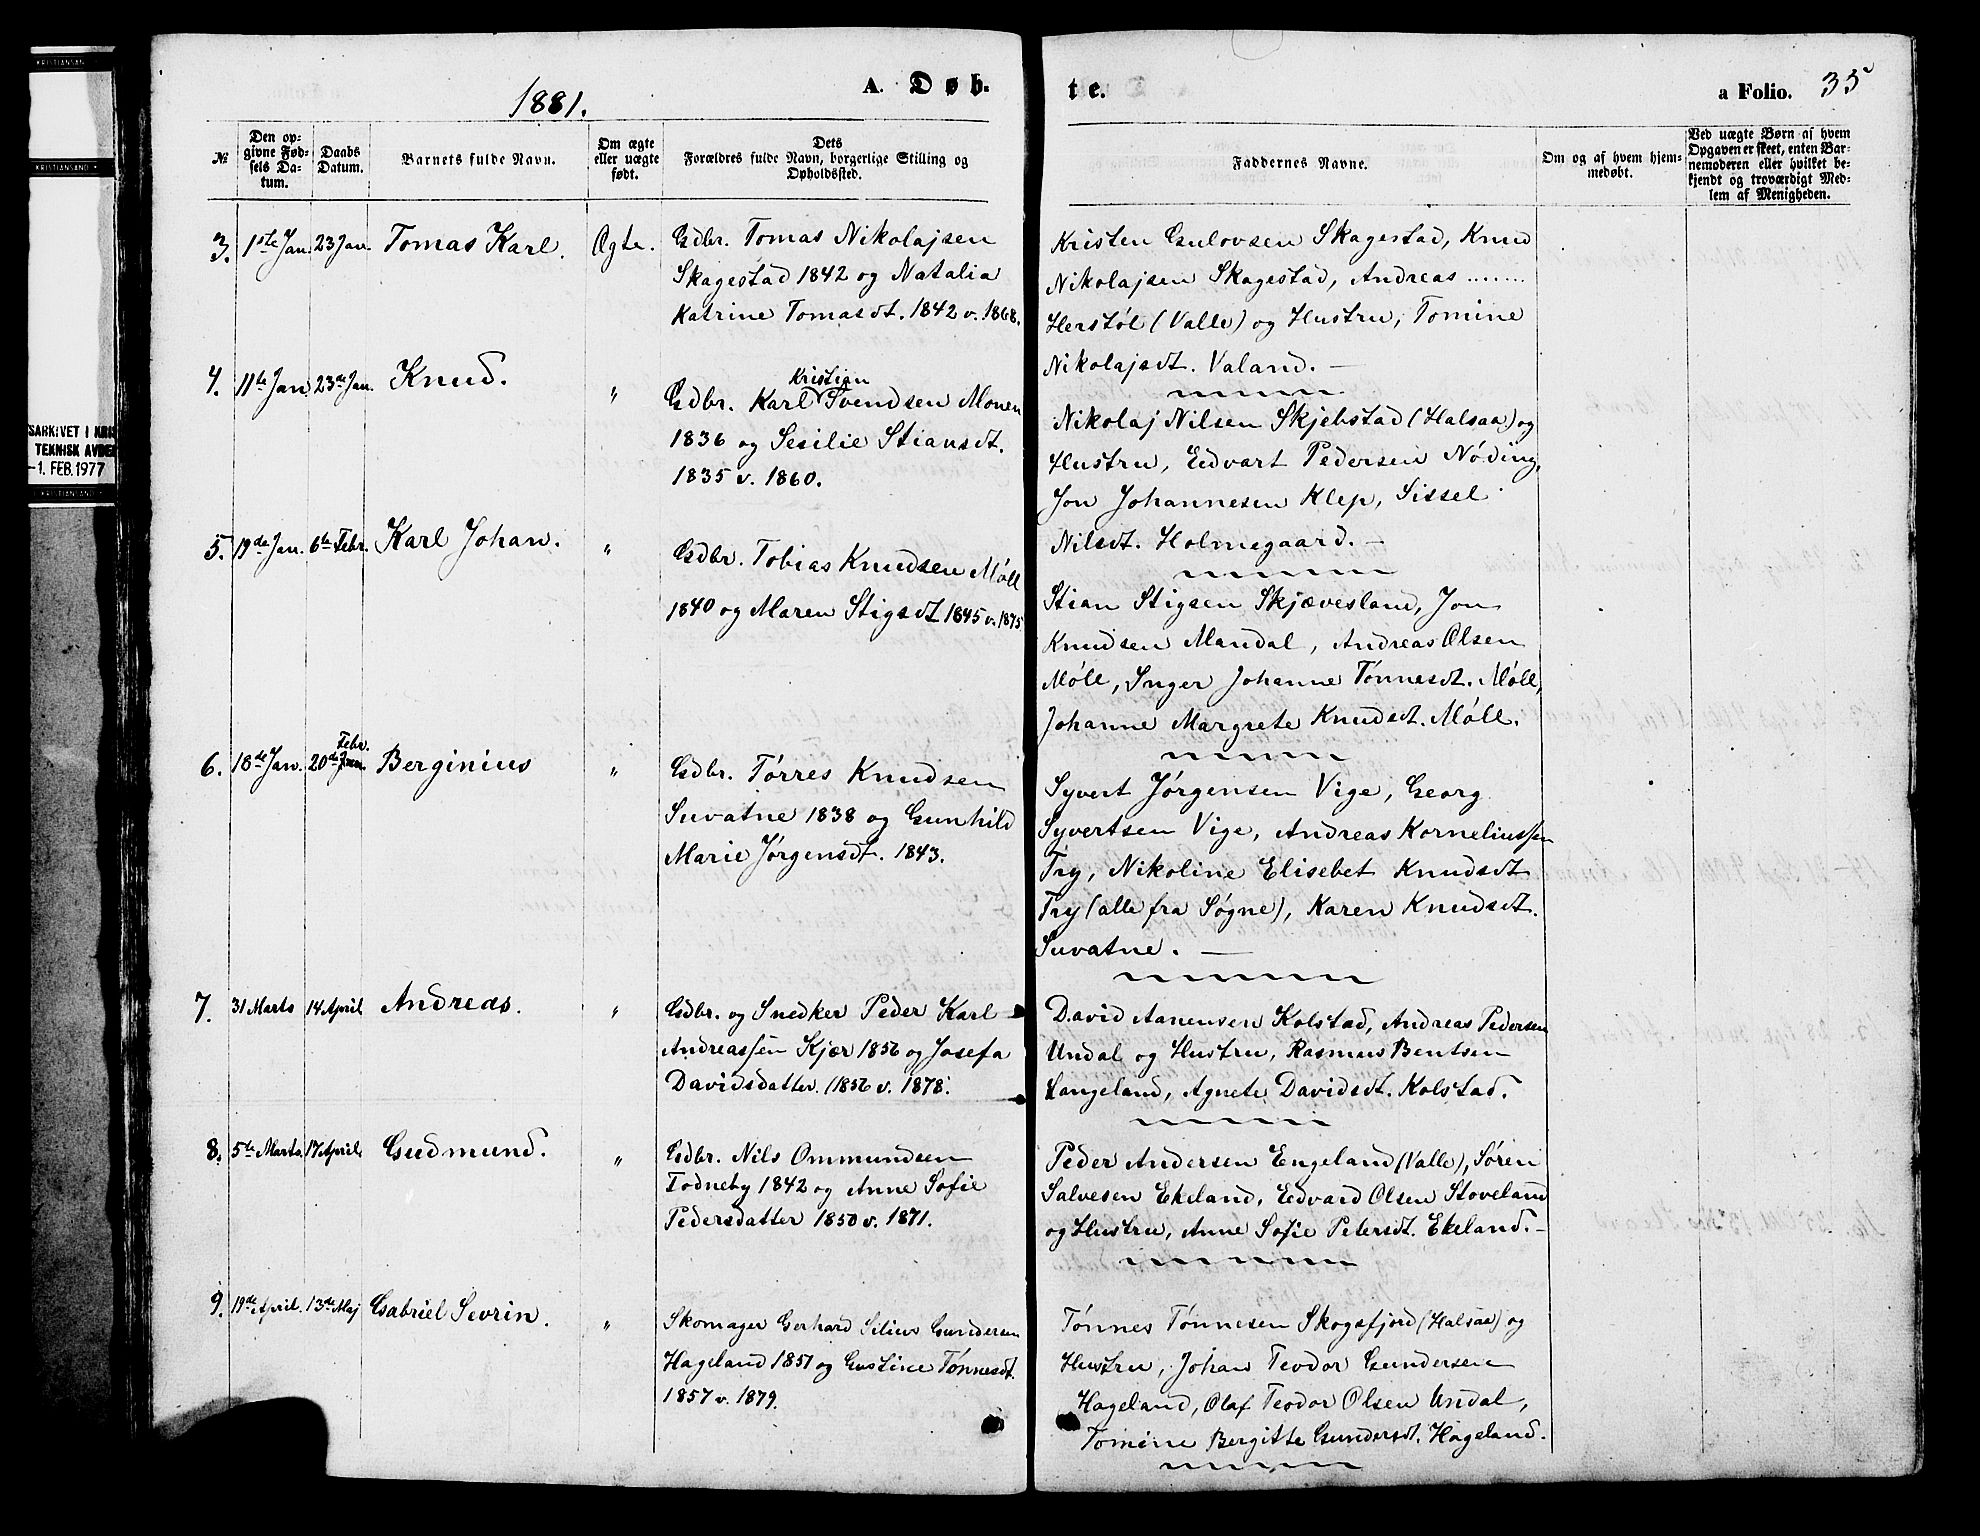 KRISTIANSAND
KRISTIANSAND
SARKIVET I KRIS
TEKNISK AVDE
-1. FEB. 1977
KRISTIANSAND
1881.
A. Døb.
te.
a Folio. 35
№
Den op-
givne Fød-
sels Da-
tum.
Daabs
Datum.
Barnets fulde Navn.
Om ægte
eller uægte
født.
Dets
Forældres fulde Navn, borgerlige Stilling og
Opholdssted.
Faddernes Navne.
Om og af hvem hjem-
medøbt.
Ved uægte Børn af hvem
Opgaven er skeet, enten Bar-
nemoderen eller hvilket be-
kjendt og troværdigt Med-
lem af Menigheden.
3. 1ste Jan. 23 Jan. Tomas Karl. Ægte.
Gdbr. Tomas Nikolajsen
Skagestad 1842 og Natalia
Katrine Tomasdt. 1842 v. 1868.
Kristen Gulovsen Skagestad, Knud
Nikolajsen Skagestad, Andreas .......
Herstøl (Valle) og Hustru, Tomine
Nikolajsdt. Valand. —
4. 11te Jan. 23de Jan. Knud. "
Kristian
Gdbr. Karl Svendsen Monen
1836 og Sesilie Stiansdt.
1835 v. 1860.
Nikolaj Nilsen Skjebstad (Halsaa) og
Hustru, Edvart Pedersen Nøding,
Jon Johannesen Klep, Sissel
Nilsdt. Holmegaard. —
5. 19de Jan. 6te Febr. Karl Johan. "
Gdbr. Tobias Knudsen Møll
1840 og Maren Stigsdt 1845 v. 1875
Stian Stigsen Skjævesland, Jon
Knudsen Mandal, Andreas Olsen
Møll, Inger Johanne Tønnesdt. Møll,
Johanne Margrete Knudsdt. Møll.
Febr.
6. 18de Jan. 20de Jan. Berginius "
Gdbr. Tørres Knudsen
Suvatne 1838 og Gunhild
Marie Jørgensdt. 1843.
Syvert Jørgensen Vige, Georg
Syvertsen Vige, Andreas Korneliussen
Try, Nikoline Elisebet Knudsdt
Try (alle fra Søgne), Karen Knudsdt.
Suvatne. —
7. 31 Marts 14 April Andreas. "
Gdbr. og Snedker Peder Karl
Andreassen Kjær 1856 og Josefa
Davidsdatter. 1856 v. 1878.
David Aanensen Kolstad, Andreas Pedersen
Undal og Hustru, Rasmus Bentsen
Langeland, Agnete Davidsdt. Kolstad.
8. 5te Marts. 17 April. Gudmund. "
Gdbr. Nils Ommundsen
Todneby 1842 og Anne Sofie
Pedersdatter 1850 v. 1871.
Peder Andersen Engeland (Valle), Søren
Salvesen Ekeland, Edvard Olsen Stoveland
og Hustru, Anne Sofie Petersdt. Ekeland. —
9. 19de April. 13de Maj Gabriel Sevrin. "
Skomager Gerhard Silius Gundersen
Hageland 1851 og Gustine Tønnesdt
1857 v. 1879.
Tønnes Tønnesen Skogsfjord (Halsaa) og
Hustru, Johan Teodor Gundersen
Hageland, Olaf Teodor Olsen Undal,
Tomine Bergitte Gundersdt. Hageland.